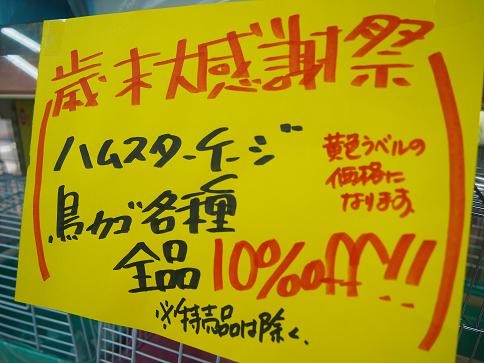 歳末大感謝祭
ハムスターケージ
鳥かご各種
全品10%off!!
黄色ラベルの
価格に
なります。
※特売品は除く。